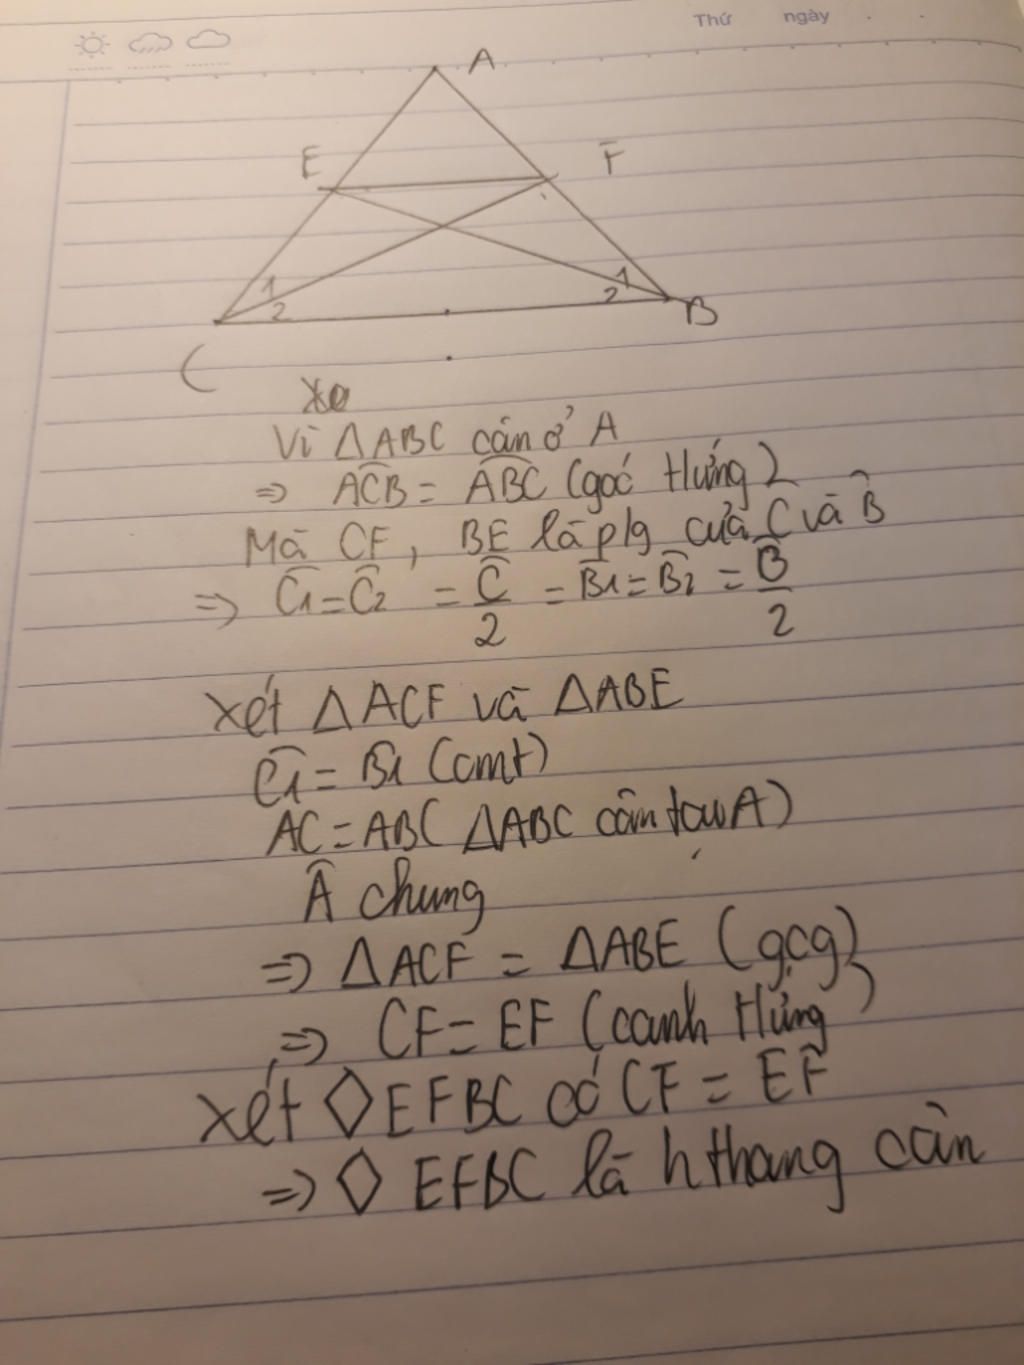 Thứ ngày
A
E F
1 1
2 2
B
C
Vì ΔABC cân ở A
=> ACB̂ = ABĈ (goć tứng)
Mà CF, BE là p/g của Ĉ và B̂
=> Ĉ1 = Ĉ2 = Ĉ/2 = B̂1 = B̂2 = B̂/2
Xét ΔACF và ΔABE
Ĉ1 = B̂1 (cmt)
AC = AB ( ΔABC cân tại A)
Â chung
=> ΔACF = ΔABE (gcg)
=> CF = EF (canh tứng)
Xét ◇EFBC có CF = EF
=> ◇ EFBC là hthang cân